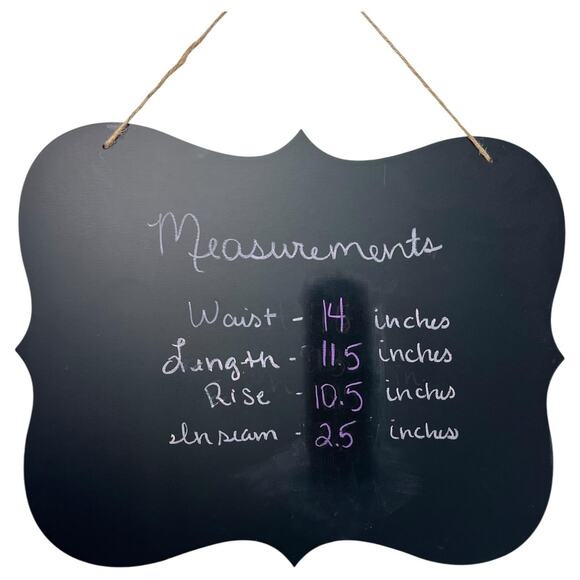 Measurements
Waist - 14 inches
Length - 11.5 inches
Rise - 10.5 inches
Inseam - 2.5 inches